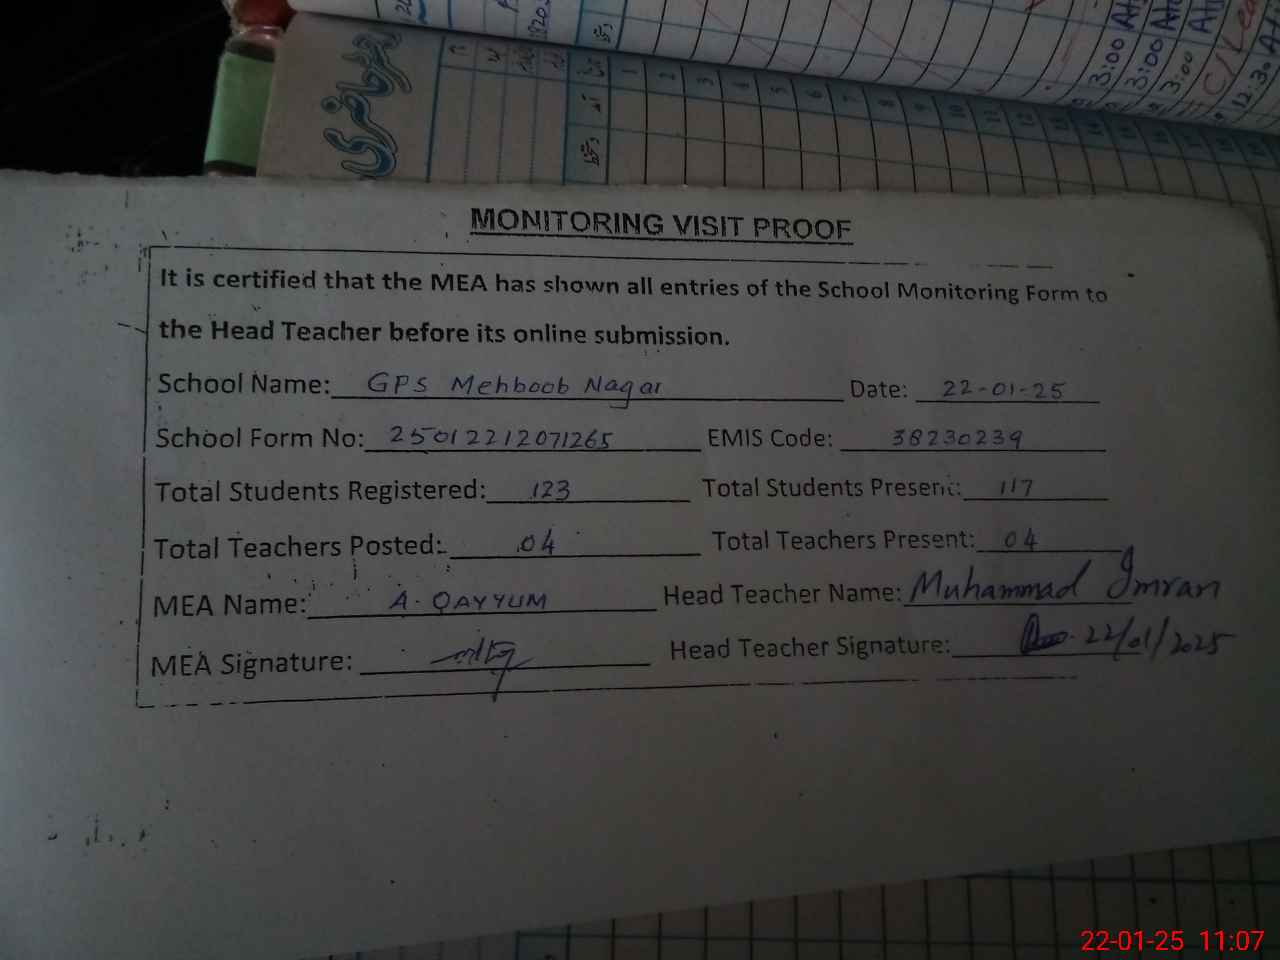 حاضری
1 2 3 4 5 6 7 8 9 10 11 12 13 14 15 16 17 18 19
3:00
3:00
3:00
12:30
MONITORING VISIT PROOF
It is certified that the MEA has shown all entries of the School Monitoring Form to
the Head Teacher before its online submission.
School Name: GPS Mehboob Nagar Date: 22-01-25
School Form No: 25012212071265 EMIS Code: 38230239
Total Students Registered: 123 Total Students Present: 117
Total Teachers Posted: 04 Total Teachers Present: 04
MEA Name: A. QAYYUM Head Teacher Name: Muhammad Imran
MEA Signature: Head Teacher Signature: 22/01/2025
22-01-25 11:07